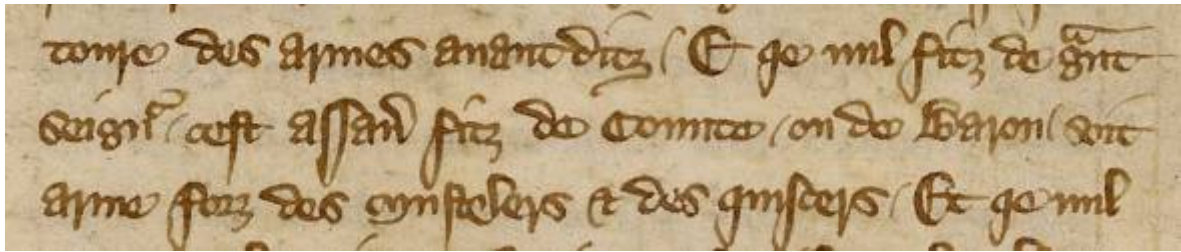 toure des armes auantditz. Et qe nul fitz de gͣnt
seignꝰ. cest assau̅ fitz de Counte. ou de Baron. soit
arme forz des mustelers & des quisers. Et qe nul